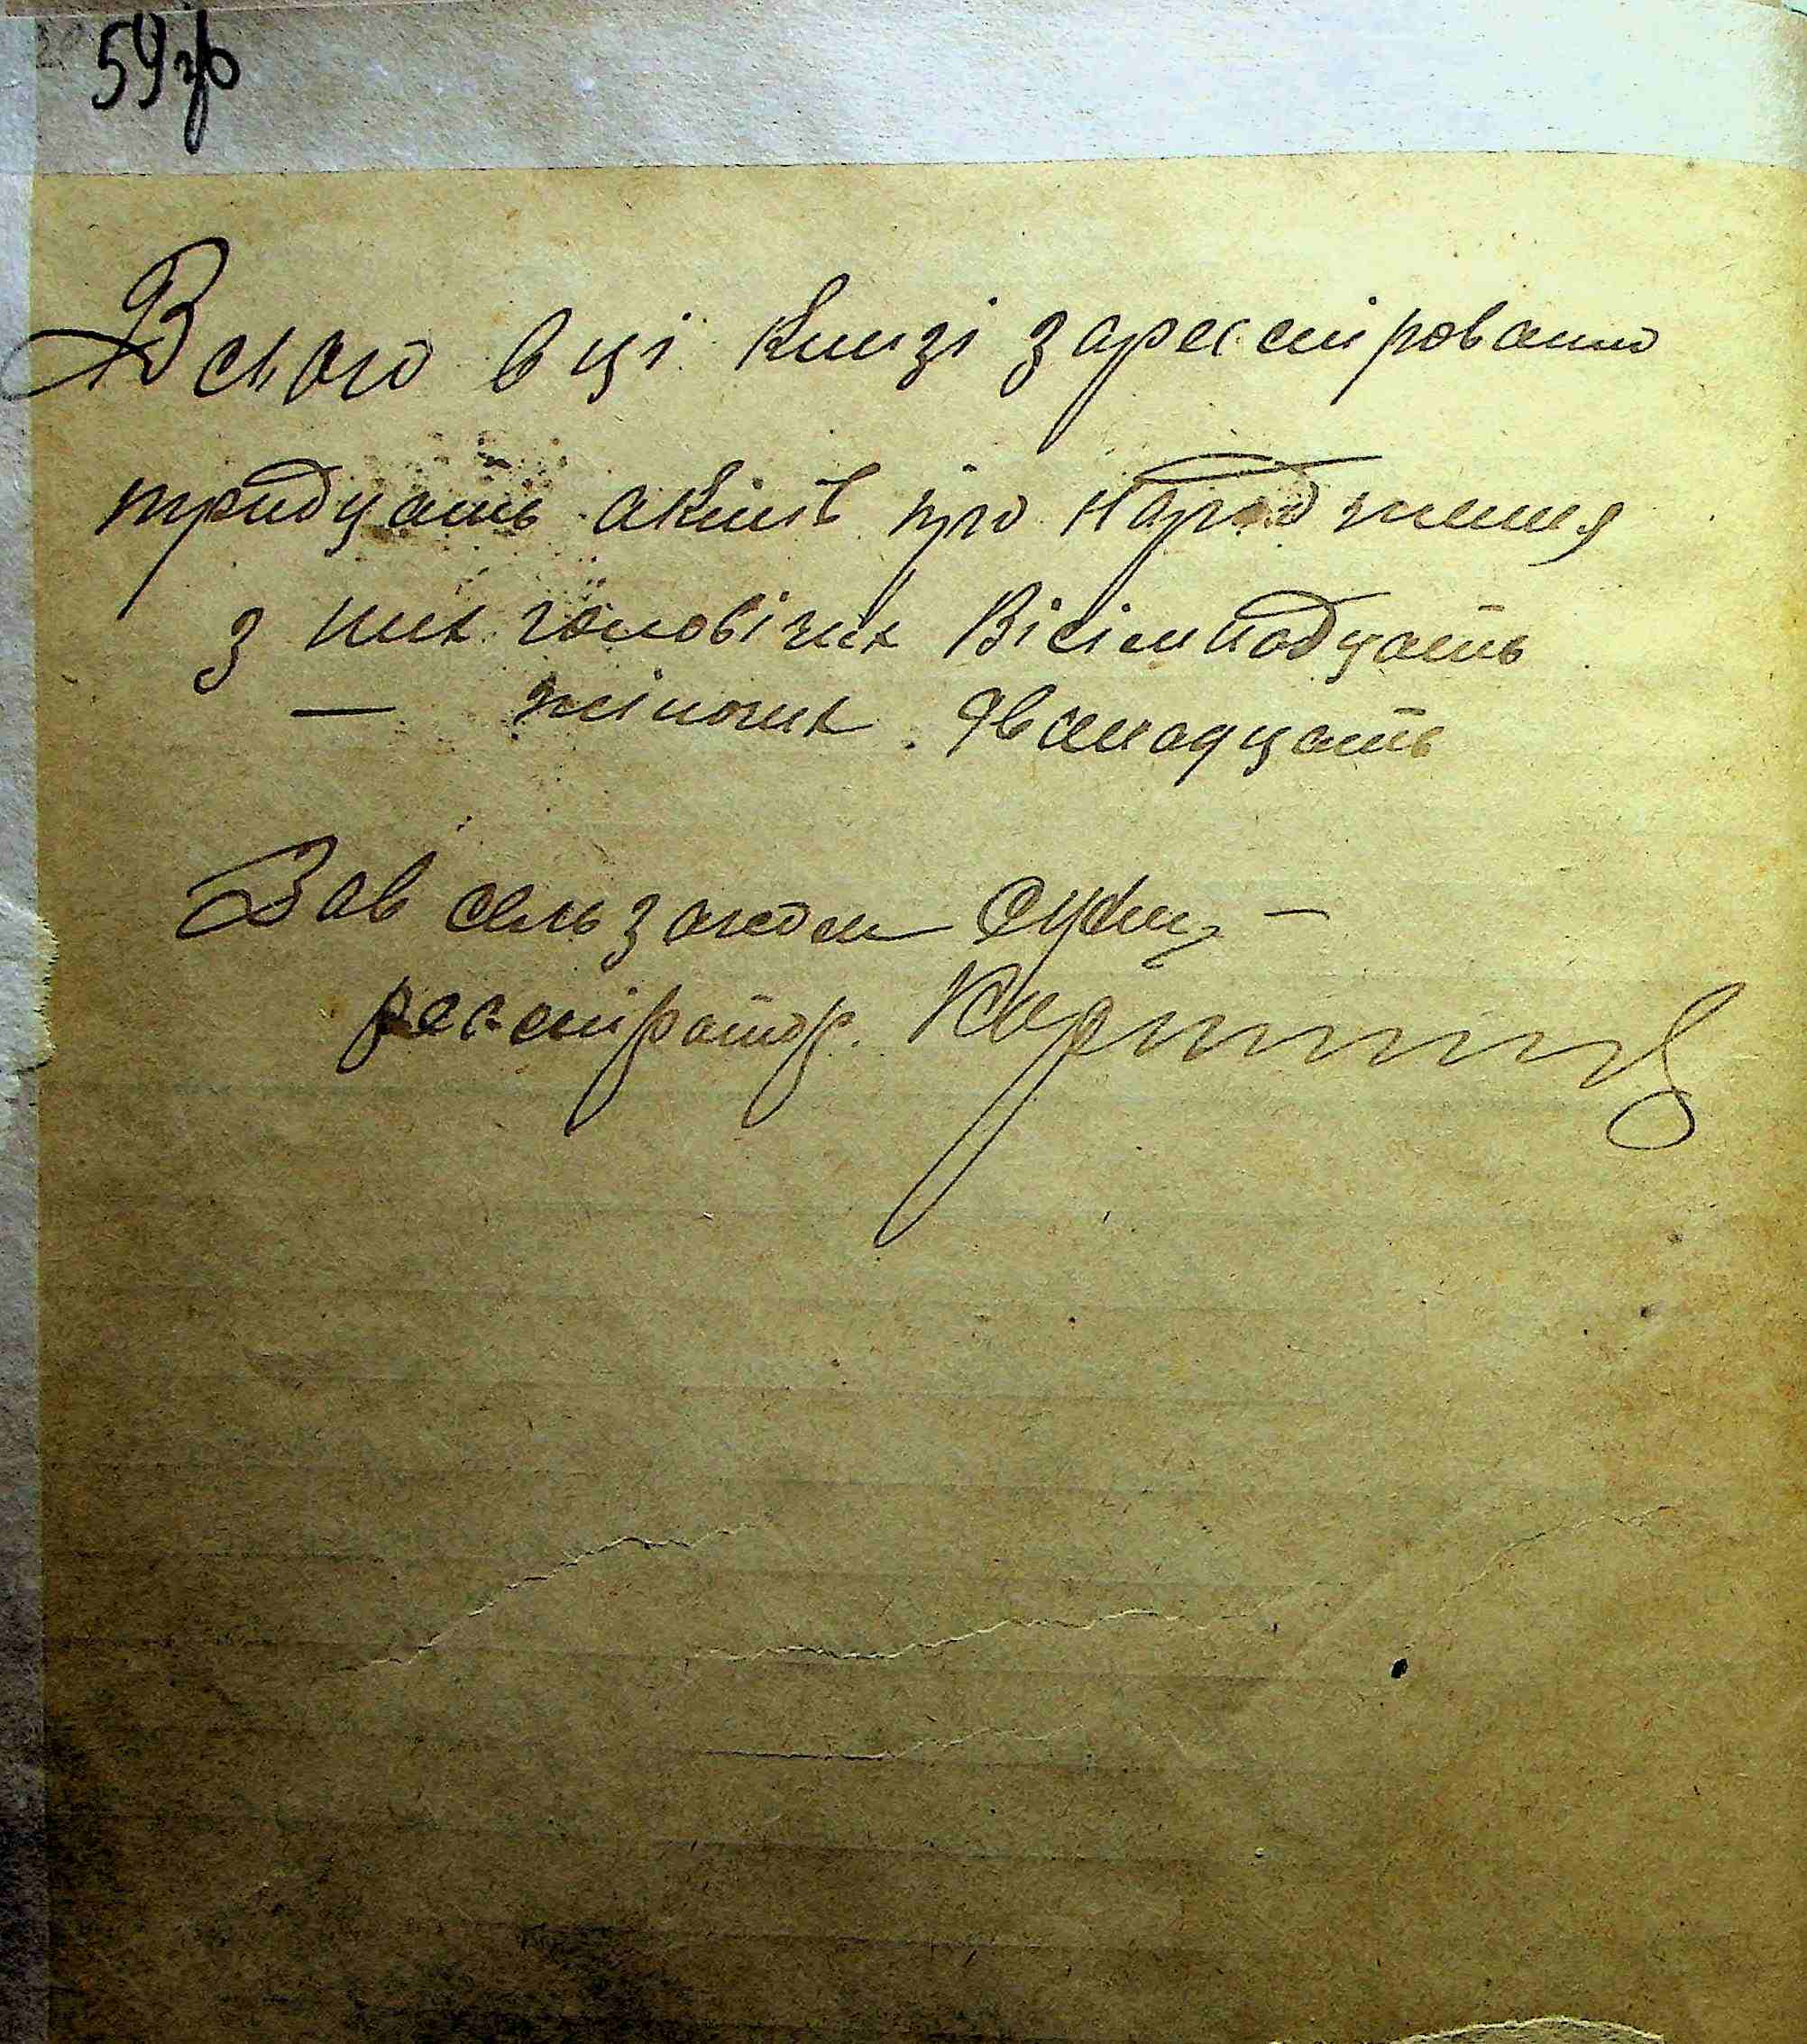 59зв
Всього в ці книзі зарегстріровано
тридцать актів про народження
з них чоловічих Вісімнадцать
— жіночих Дванадцать
Зав сельзагсом
регстратор.